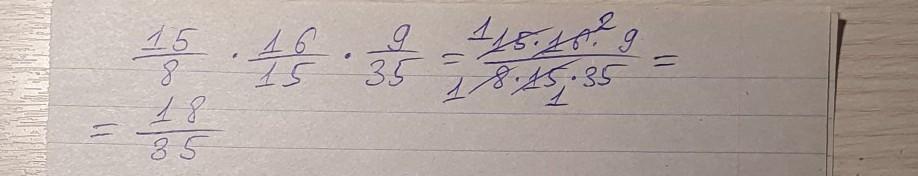 15/8 · 16/15 · 9/35 = 1 15·16² · 9 / 1 8·15·35 1 =
= 18/35